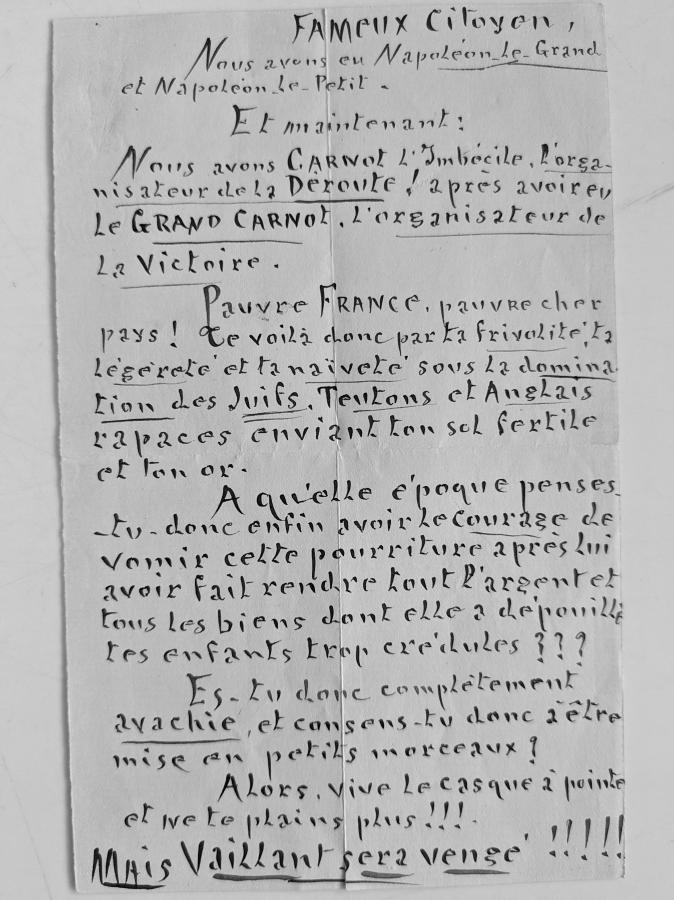 FAMEUX Citoyen,
Nous avons eu Napoléon-le-Grand
et Napoléon-le-Petit.
Et maintenant:
Nous avons CARNOT l'Imbécile, l'orga-
nisateur de la Déroute! après avoir eu
le GRAND CARNOT, l'organisateur de
la Victoire.
Pauvre FRANCE, pauvre cher
pays! Te voilà donc par ta frivolité, ta
légèreté et ta naïveté sous la domina-
tion des Juifs, Teutons et Anglais
rapaces enviant ton sol fertile
et ton or.
A qu'elle époque penses-
-tu-donc enfin avoir le courage de
vomir cette pourriture après lui
avoir fait rendre tout l'argent et
tous les biens dont elle a dépouillé
tes enfants trop crédules ???
Es-tu donc complètement
avachie, et consens-tu donc à être
mise en petits morceaux?
Alors, vive le casque à pointe
et ne te plains plus!!!.
MAIS Vaillant sera vengé !!!!!